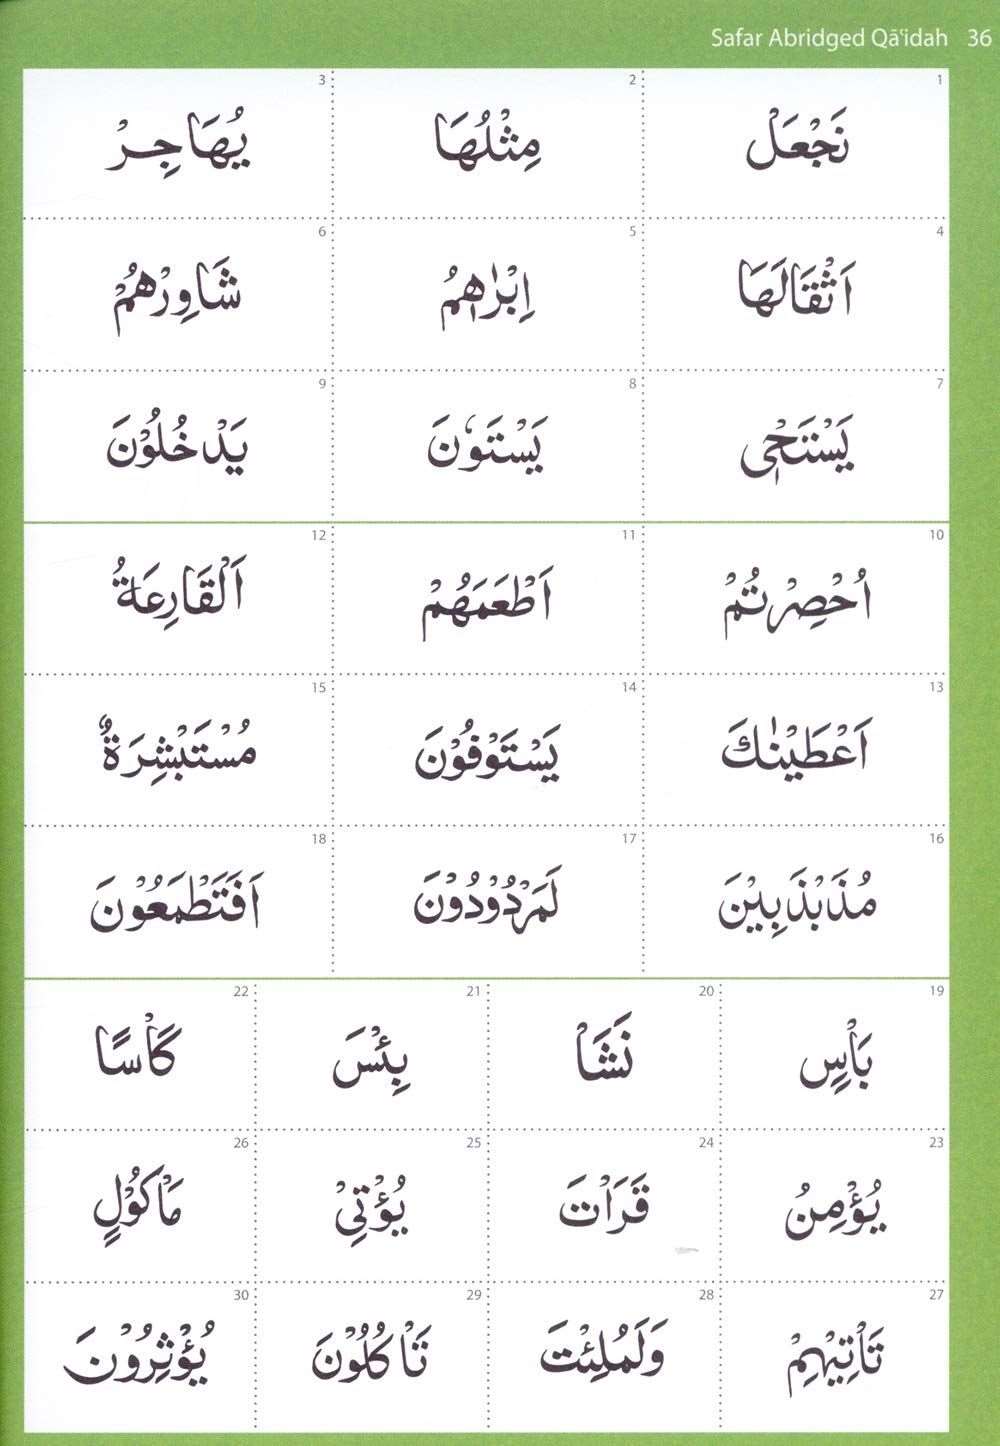 Safar Abridged Qā'idah 36
1 نَجْعَلْ 2 مِثْلُهَا 3 يُهَاجِرْ
4 اَثْقَالَهَا 5 اِبْرٰهٖمُ 6 شَاوِرْهُمْ
7 يَسْتَحْيٖ 8 يَسْتَوٗنَ 9 يَدْخُلُوْنَ
10 اُحْصِرْتُمْ 11 اَطْعَمَهُمْ 12 اَلْقَارِعَةُ
13 اَعْطَيْنٰكَ 14 يَسْتَوْفُوْنَ 15 مُسْتَبْشِرَةٌ
16 مُذَبْذَبِيْنَ 17 لَمَرْدُوْدُوْنَ 18 اَفَتَطْمَعُوْنَ
19 بَاْسٍ 20 نَشَاْ 21 بِئْسَ 22 كَاْسًا
23 يُؤْمِنُ 24 قَرَاْتَ 25 يُؤْتِيْ 26 مَاْكُوْلٍ
27 تَاْتِيْهِمْ 28 وَلَمُلِئْتَ 29 تَاْكُلُوْنَ 30 يُؤْثِرُوْنَ